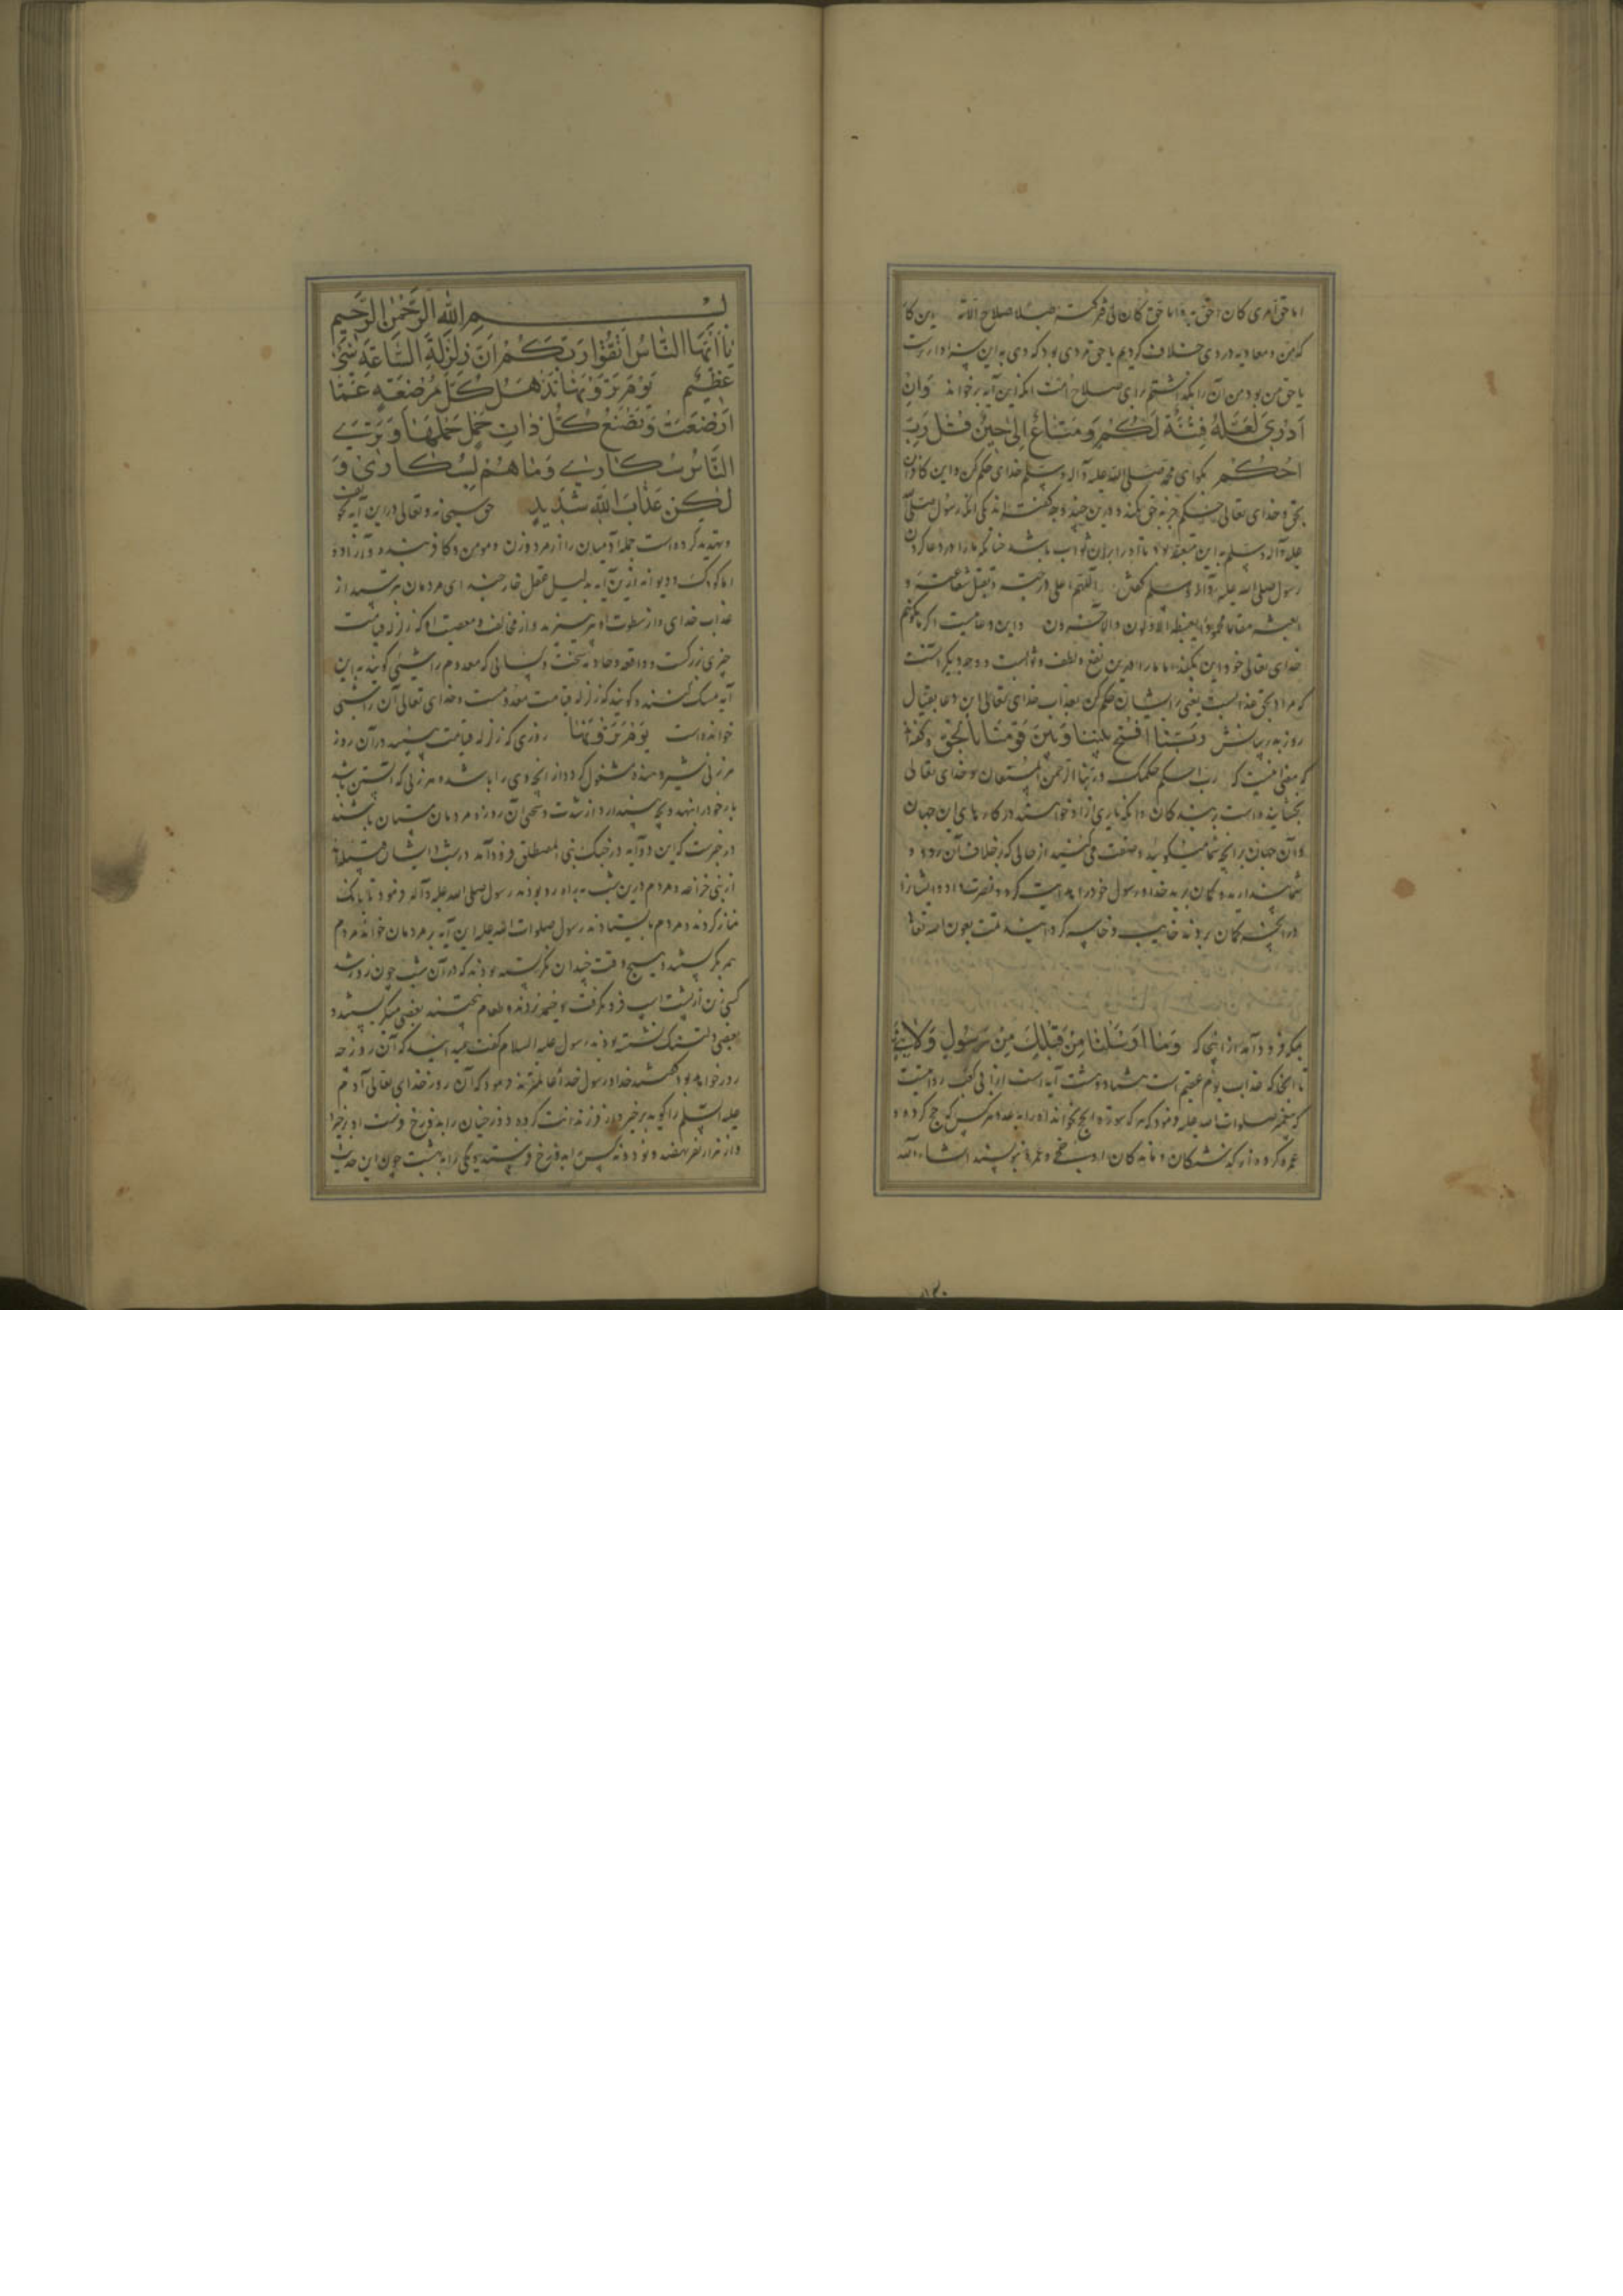 اما حق امری کان احق به واما حق کان لی فترکته صلاح الامة
یا حق من بود من آن را بگذاشتم برای صلاح امت آنگه این آیه برخواند وَاِنْ
اَدْرِی لَعَلَّهُ فِتْنَةٌ لَکُمْ وَمَتَاعٌ اِلٰی حِینٍ قٰلَ رَبِّ
احْکُمْ بگو ای محمد صلی الله علیه وآله وسلم خدای حکم کن و این کافران
بحق و خدای تعالی حکم جز به حق نکند و درین چند وجه گفته اند یکی آنکه رسول صلی الله
علیه وآله وسلم به این متعبد بود تا او را بران ثواب باشد چنانکه ما را در دعا کردن
رسول صلی الله علیه وآله وسلم گفتن اللهم اعلی درجته وتقبل شفاعته و
ابعثه مقاما محمودا یغبطه الاولون والآخرون و این دعاییست اگر ما نگوییم
خدای تعالی خود این بکند اما ما را درین نفع و لطف و ثوابست و وجه دیگر آنست
که مراد بحق عذابست یعنی برایشان حکم کن بعذاب خدای تعالی این دعا
روز بدر رَبَّنَا افْتَحْ بَیْنَنَا وَبَیْنَ قَوْمِنَا بِالْحَقِّ
که معنی اینست که رب احکم بحکمک وربنا الرحمن المستعان و خدای تعالی
بخشاینده است بر بندگان و آنکه یاری ازو خواستند در کارهای این جهان
و آن جهان بر آنچه شما میگویید و صفت می کنید از حالی که برخلاف آن رود و
شما پندارید و گمان برید خدا و رسول خود را هدایت کرد و نصرت داد و ایشان را
در آنچه گمان بردند خایب و خاسر گردانید تمت بعون الله تعالی
بمکه فرود آمد از آنجا که وَمَا اَرْسَلْنَا مِنْ قَبْلِکَ مِنْ رَسُولٍ وَلَا نَبِیٍّ
تا آنجا که عذاب یوم عقیم است هشتاد و هشت آیه است از ابی کعب روایتست
که پیغمبر صلوات الله علیه فرمود که هر که سورة الحج بخواند او را به عدد هر کس که حج کرده و
عمره کرده از گذشتگان و ماندگان او را حجی و عمره نویسند انشاء الله
بِسْمِ اللهِ الرَّحْمٰنِ الرَّحِیمِ
یَا اَیُّهَا النَّاسُ اتَّقُوا رَبَّکُمْ اِنَّ زَلْزَلَةَ السَّاعَةِ شَیْءٌ
عَظِیمٌ یَوْمَ تَرَوْنَهَا تَذْهَلُ کُلُّ مُرْضِعَةٍ عَمَّا
اَرْضَعَتْ وَتَضَعُ کُلُّ ذَاتِ حَمْلٍ حَمْلَهَا وَتَرَی
النَّاسَ سُکَارٰی وَمَا هُمْ بِسُکَارٰی وَ
لٰکِنَّ عَذَابَ اللهِ شَدِیدٌ حق سبحانه و تعالی در این آیه تخویف
و تهدید کرده است جمله آدمیان را از مرد و زن و مومن و کافر و بنده و آزاده
اما کودک و دیوانه ازین آیه به دلیل عقل خارجند ای مردمان بترسید از
عذاب خدای و از سطوت او بپرهیزید و از مخالفت و معصیت او که زلزله قیامت
چیزی بزرگست و واقعه و حادثه سخت و کسانی که معدوم را شیئی گویند به این
آیه تمسک کنند و گویند که زلزله قیامت معدومست و خدای تعالی آن را شیئی
خوانده است یَوْمَ تَرَوْنَهَا روزی که زلزله قیامت ببینید در آن روز
هر زنی شیر دهنده مشغول گردد از آنچه وی را باشد و هر زنی که آبستن باشد
بار خود را بنهد و بچه بیندازد از شدت و سختی آن روز و مردمان مستان باشند
در خبرست که این دو آیه در جنگ بنی المصطلق فرود آمد در شب و ایشان قبیله اند
از بنی خزاعه و مردم درین شب به راه رو بودند رسول صلی الله علیه وآله فرمود تا بانگ
نماز کردند و مردم بایستادند رسول صلوات الله علیه این آیه بر مردمان خواند مردم
همه بگریستند و هیچ وقت چندان نگریسته بودند که در آن شب چون روز شد
کس زین از پشت اسب فرو نگرفت و خیمه نزدند و طعام نپختند بعضی میگریستند و
بعضی دلتنگ نشسته بودند رسول علیه السلام گفت میدانید که آن روز چه
روز خواهد بود گفتند خدا و رسول خدا عالمترند فرمود که آن روز خدای تعالی آدم
علیه السلم را گوید برخیز و از فرزندانت گروه دوزخیان را به دوزخ فرست
و از هزار نفر نهصد و نود و نه کس را به دوزخ فرستند و یکی را به بهشت چون این حدیث